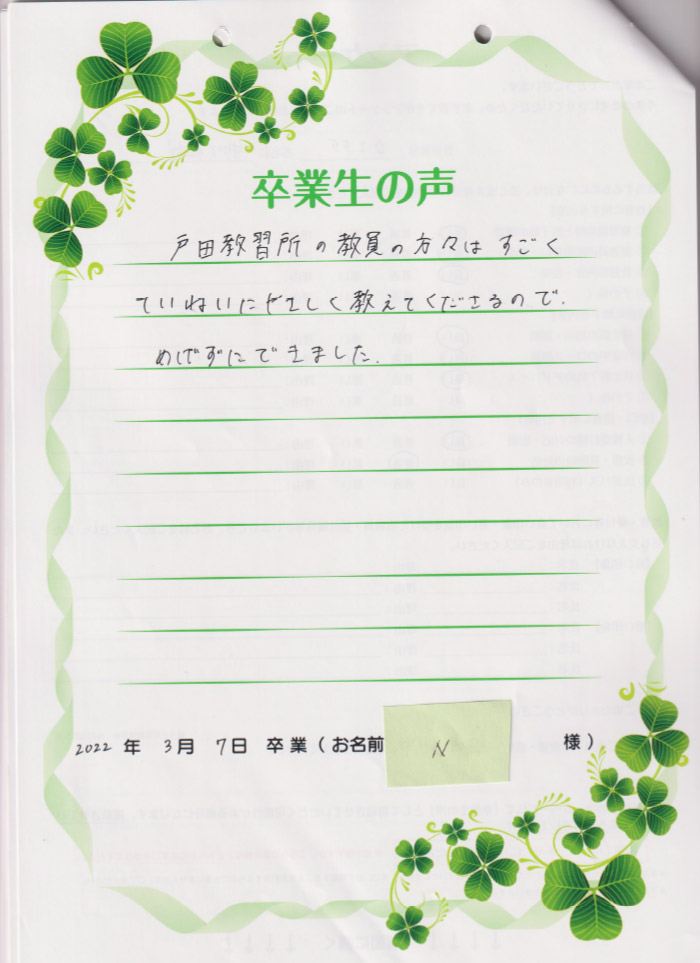 卒業生の声
戸田教習所の教員の方々はすごく
ていねいにやさしく教えてくださるので.
めげずにできました.
2022 年 3月 7日 卒業（お名前 N 様）